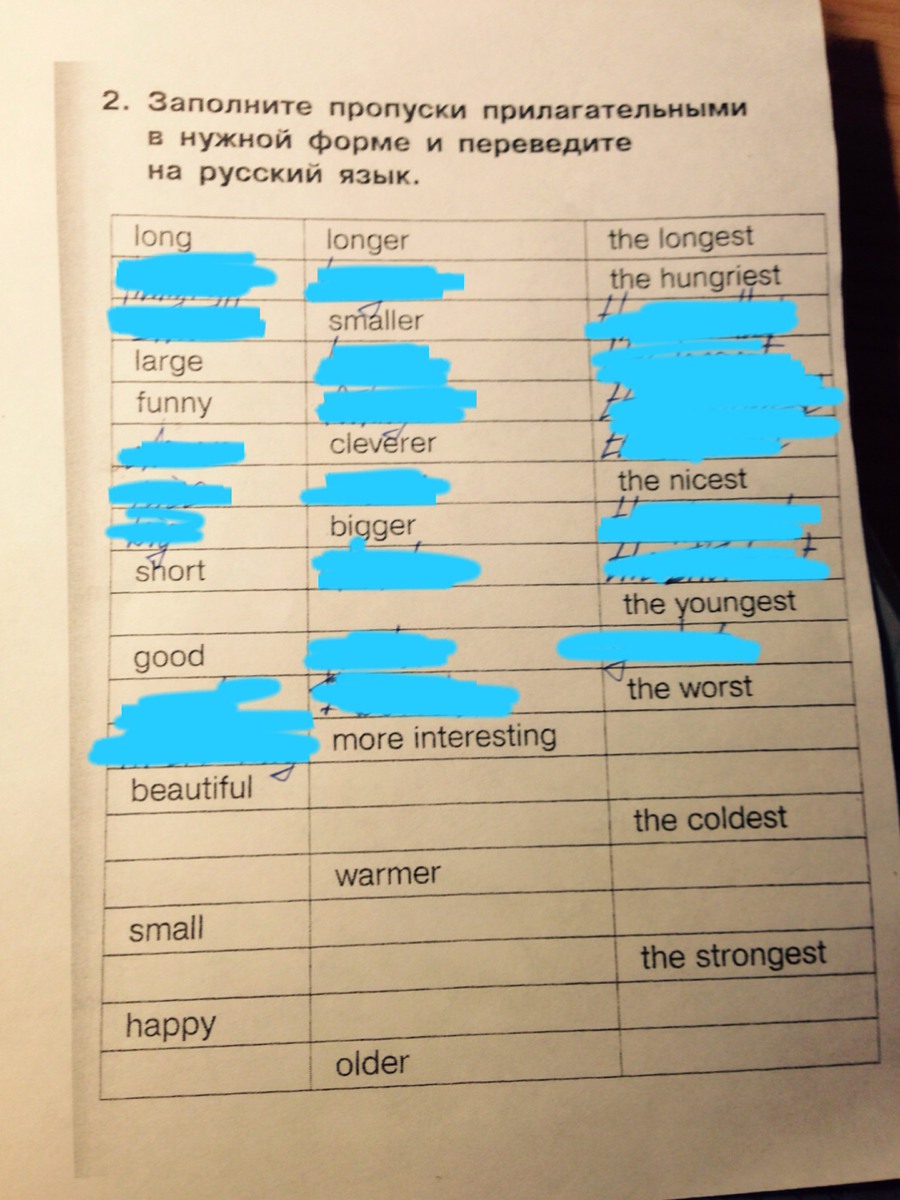 2. Заполните пропуски прилагательными
в нужной форме и переведите
на русский язык.
long longer the longest
the hungriest
smaller
large
funny
cleverer
the nicest
bigger
short
the youngest
good
the worst
more interesting
beautiful
the coldest
warmer
small
the strongest
happy
older